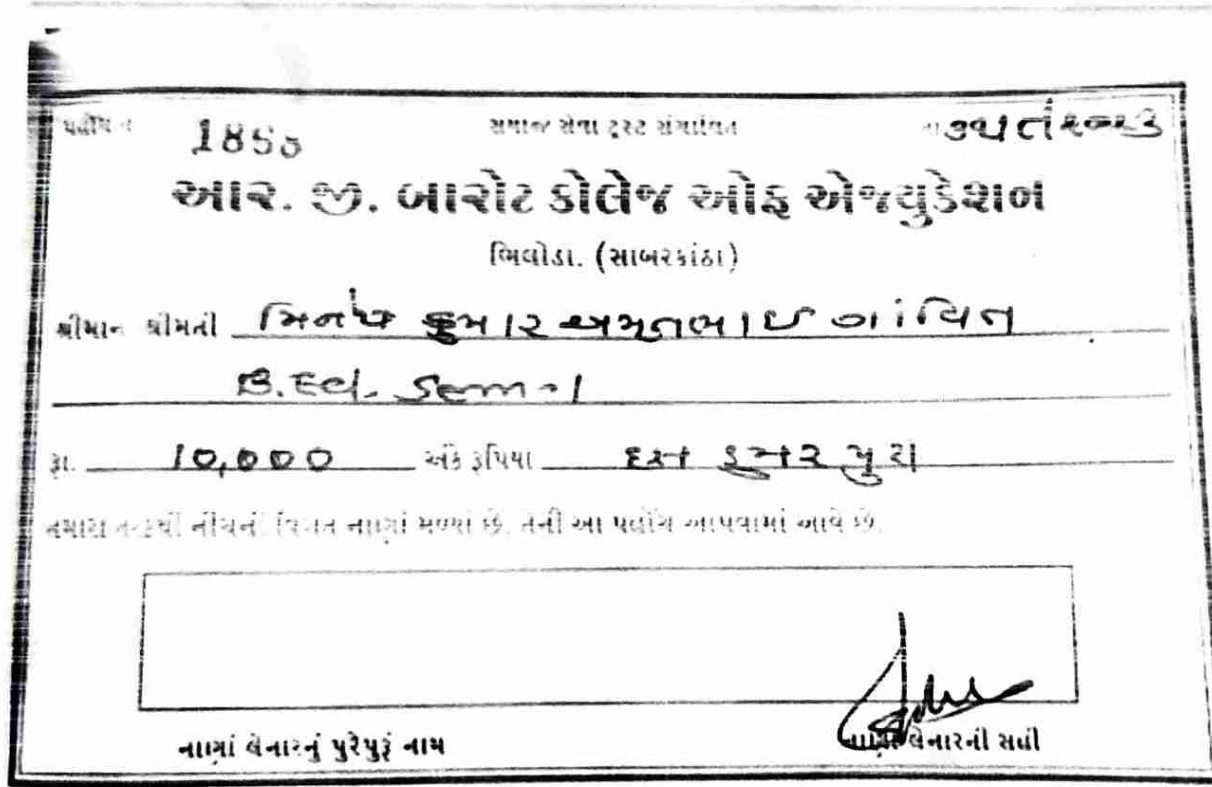 પહોંચ નં 1865 સમાજ સેવા ટ્રસ્ટ સંચાલિત તા
આર. જી. બારોટ કોલેજ ઓફ એજ્યુકેશન
ભિલોડા. (સાબરકાંઠા)
શ્રીમાન શ્રીમતી કુમાર અમૃતભાઈ ગાંવિત
B.Ed. Sem-1
રૂા. 10,000 અંકે રૂપિયા દસ હજાર પુરા
તમારા તરફથી નીચેની વિગત નાણાં મળ્યાં છે. તેની આ પહોંચ આપવામાં આવે છે.
નાણાં લેનારનું પુરેપુરૂં નામ નાણાં લેનારની સહી